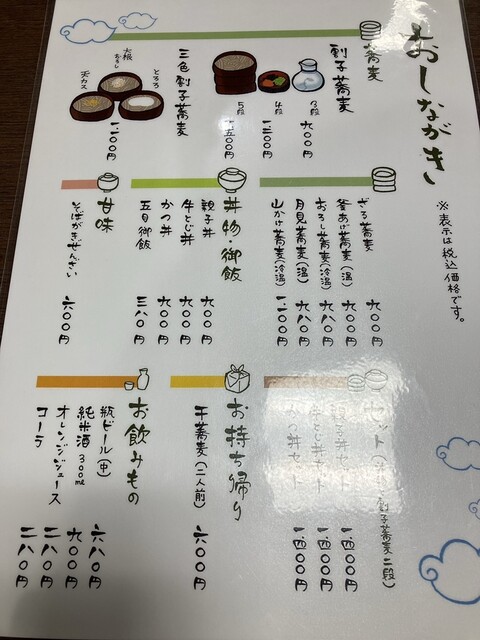 おしながき
※表示は税込価格です。
蕎麦
割子蕎麦
3段 九〇〇円
4段 一二〇〇円
5段 一五〇〇円
三色割子蕎麦
大根おろし
とろろ
天カス
一一〇〇円
ざる蕎麦 九〇〇円
釜あげ蕎麦(温) 九〇〇円
おろし蕎麦(冷温) 九八〇円
月見蕎麦(温) 九八〇円
山かけ蕎麦(冷温) 一一〇〇円
丼物・御飯
親子丼 九〇〇円
牛とじ丼 九〇〇円
かつ丼 九〇〇円
五目御飯 三八〇円
甘味
そばがきぜんざい 六〇〇円
セット 割子蕎麦二段)
親子丼セット 一四〇〇円
牛とじ丼セット 一四〇〇円
かつ丼セット 一四〇〇円
お持ち帰り
干蕎麦(二人前) 六〇〇円
お飲みもの
瓶ビール(中) 六八〇円
純米酒300ml 九〇〇円
オレンジジュース 二八〇円
コーラ 二八〇円